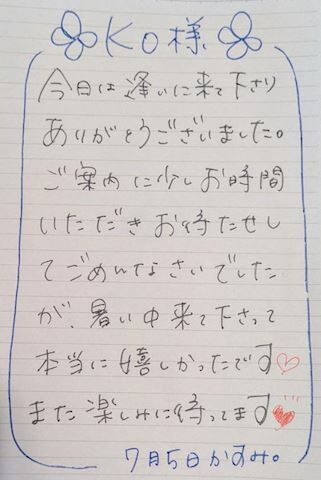 KO様
今日は逢いに来て下さり
ありがとうございました。
ご案内に少しお時間
いただきお待たせし
てごめんなさいでした
が、暑い中来て下さって
本当に嬉しかったです♡
また楽しみに待ってます♥
7月5日かすみ。